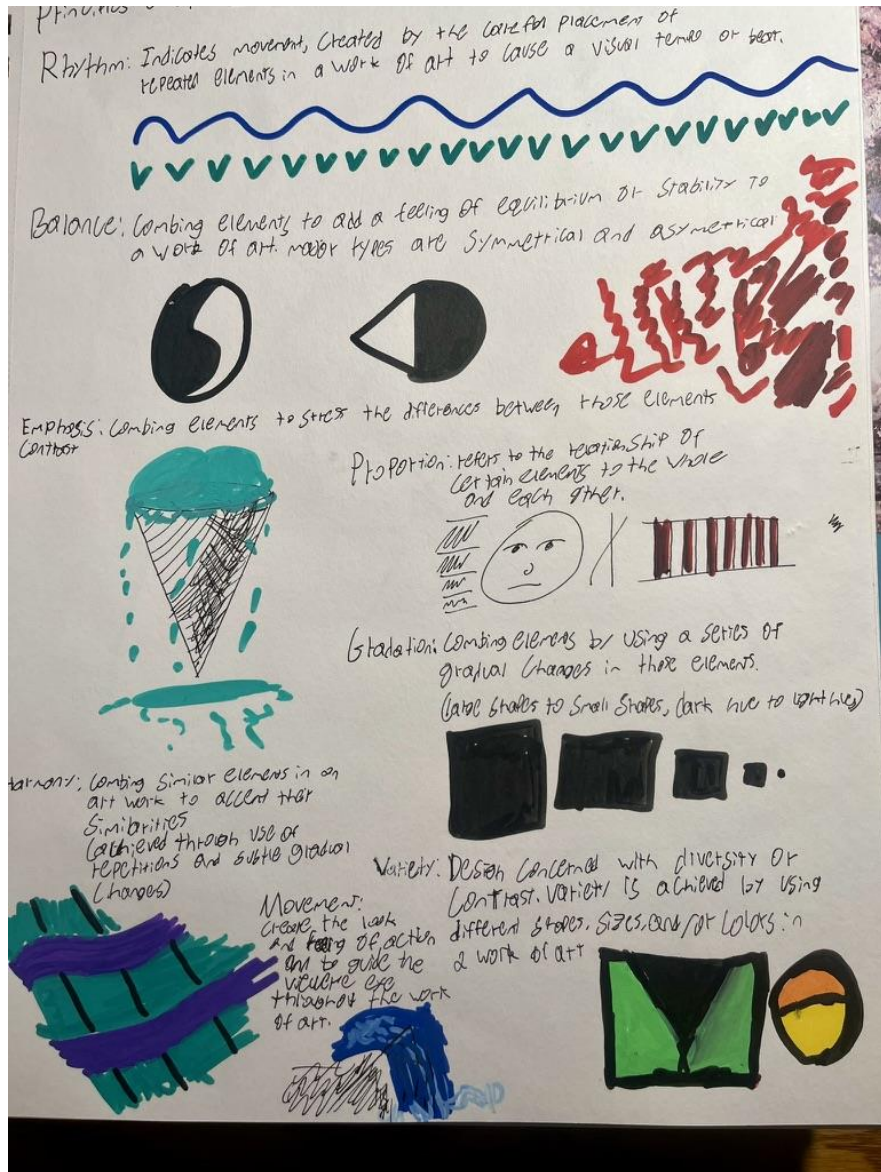 Rhythm: Indicates movement, Created by the careful placement of
repeated elements in a work of art to cause a visual tempo or beat.
Balance: Combing elements to add a feeling of equilibrium or stability to
a work of art. major types are symmetrical and asymetrical
Emphasis: Combing elements to stress the differences between those elements
Contrast
Proportion: refers to the relationship of
certain elements to the whole
and each other.
Gradation: Combing elements by using a series of
gradual changes in those elements.
(large shapes to small shapes, dark hue to light hue)
Harmony: Combing similar elements in an
art work to accent their
similarities
(achieved through use of
repetitions and subtle gradual
changes)
Variety: Design concerned with diversity or
contrast. Variety is achieved by using
different shapes, sizes, and/or colors in
a work of art
Movement:
create the look
and of action
to guide the
eye
throughout the work
of art.